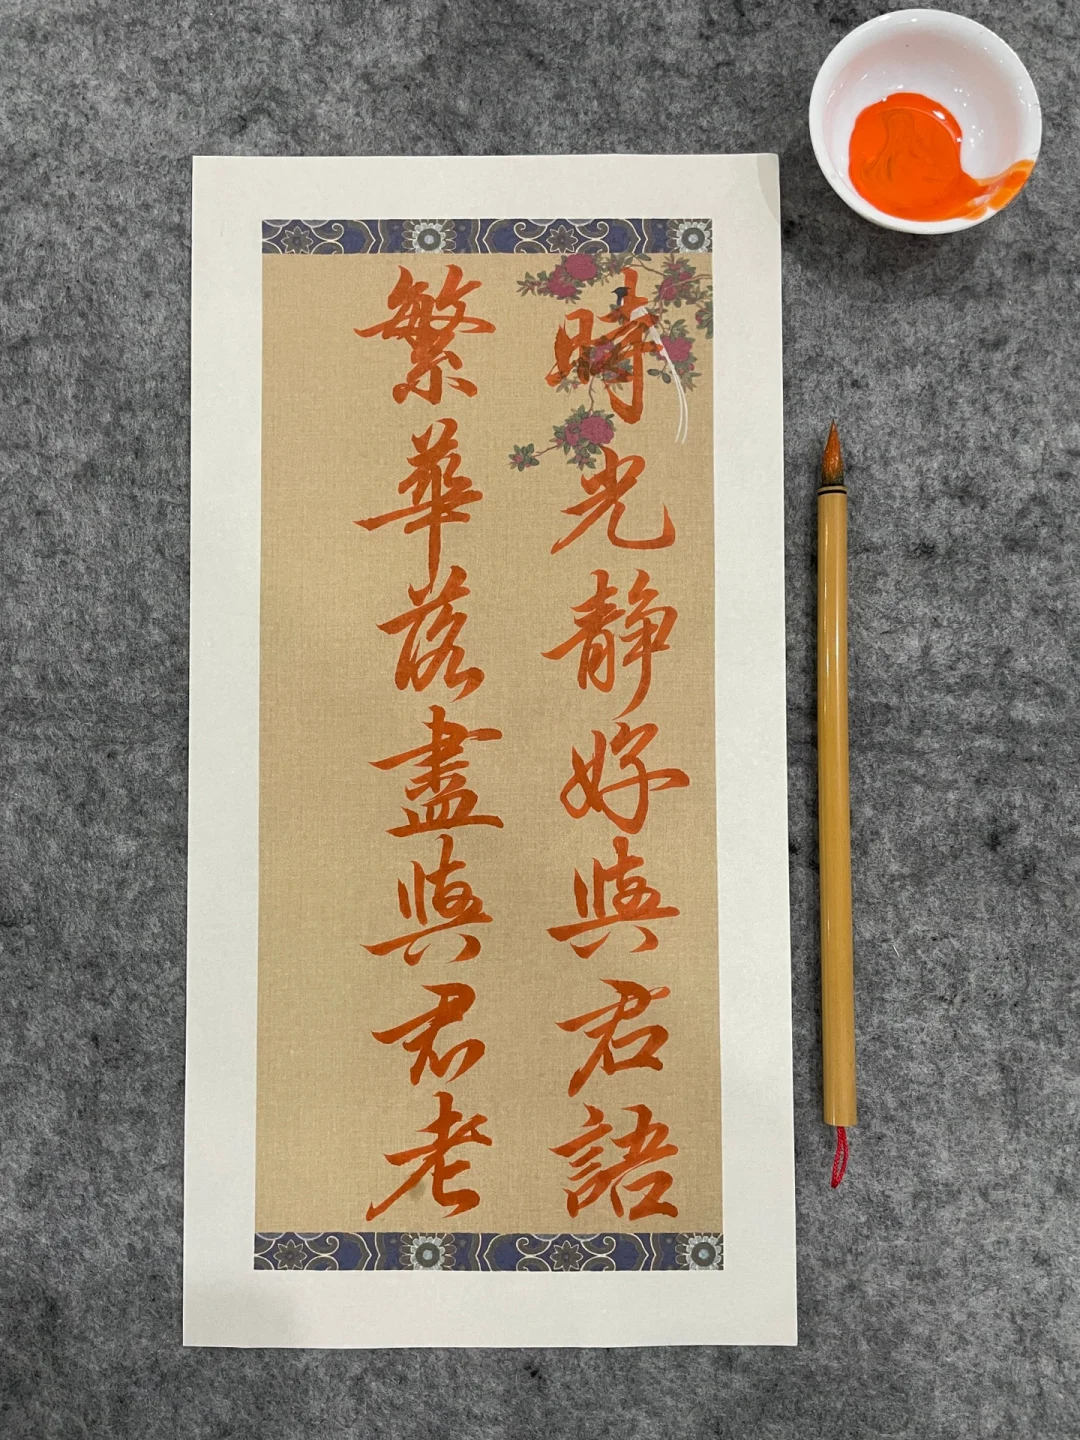 時光靜好與君語
繁華落盡與君老